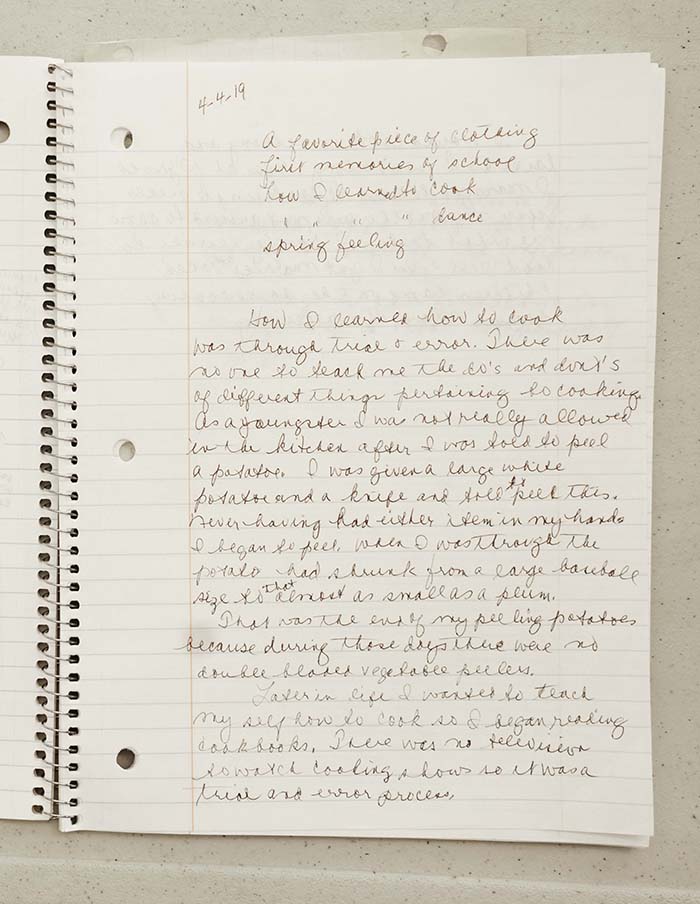 4-4-19
A favorite piece of clothing
first memories of school
how I learned to cook
" " " " dance
spring feeling
How I learned how to cook
was through trial & error. There was
no one to teach me the do's and dont's
of different things pertaining to cooking.
As a youngster I was not really allowed
in the kitchen after I was told to peel
a potatoe. I was given a large white
potatoe and a knife and told to peel this.
Never having had either item in my hands
I began to peel. When I was through the
potato had shrunk from a large baseball
size to that almost as small as a plum.
That was the end of my peeling potatoes
because during those days there were no
double bladed vegetable peelers.
Later in life I wanted to teach
my self how to cook so I began reading
cookbooks. There was no television
to watch cooling shows so it was a
trial and error process.